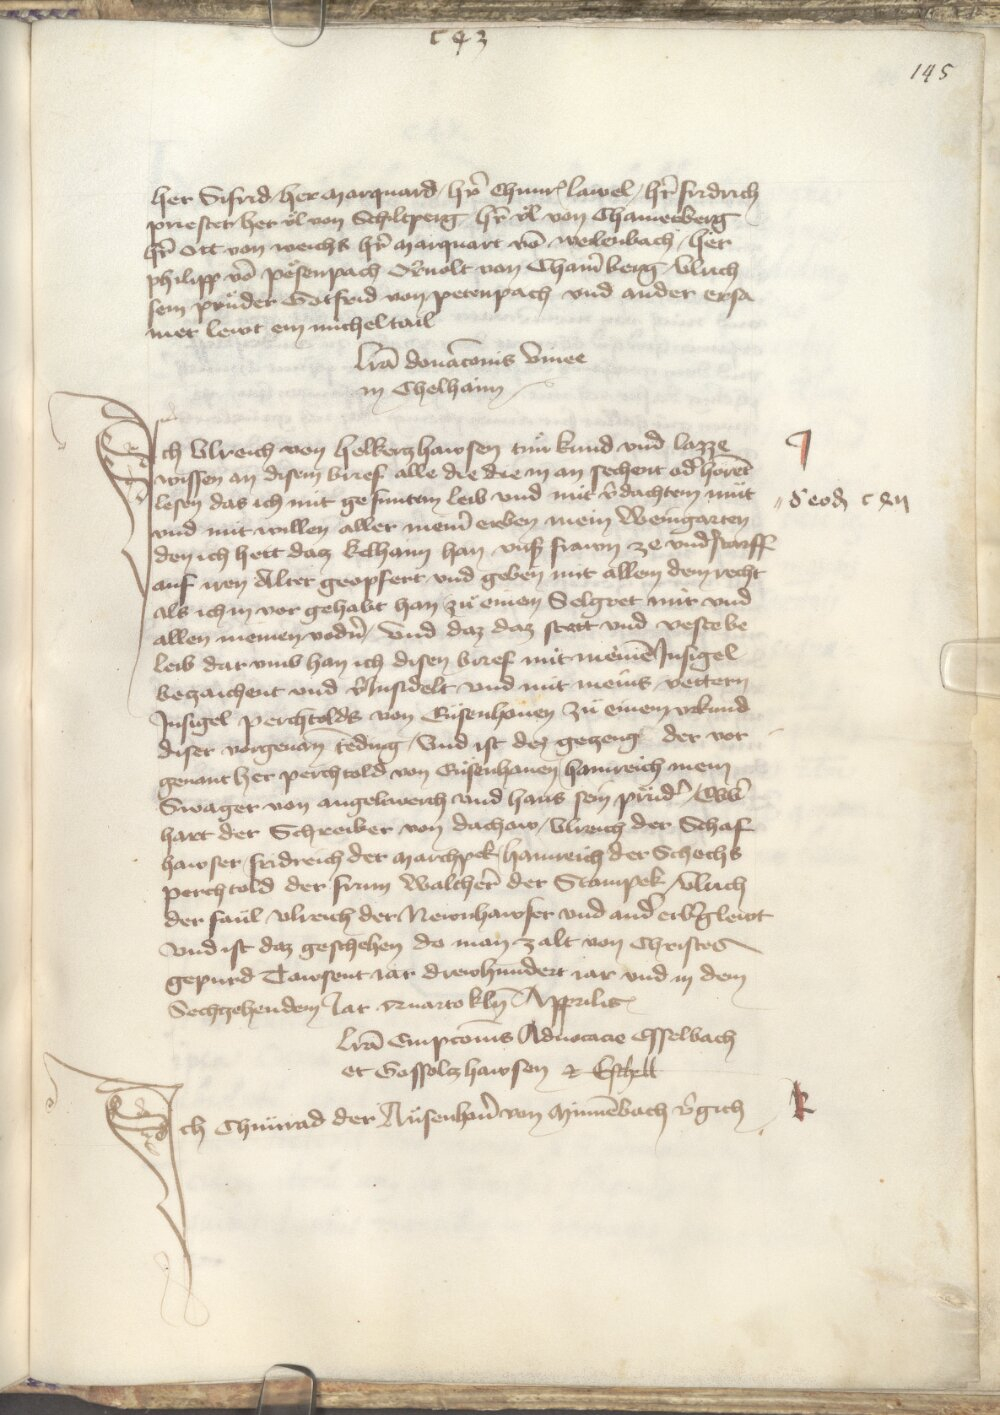 c 43
145
her Sifrid / her marquard / hr̄ Chunr̄ lawel / hr̄ fridrich
priester her v̊l von Schiltperg hr̄ v̊l von Chamerberg
hr̄ Ott von weichs hr̄ marquart vō weilenbach / her
philipp vō pesenpach Ornolt von Cham̄berg / vlrich
sein prüder Gotfrid von petenpach vnd ander ersa
mer lewt ein michel tail
Lrā donac̄onis vinee
in Chelhaim
Ich Vlreich von helkerzhawsen tun kund vnd lazze
wissen an disem brief alle die die in an sechent od̄ hörent
lesen das ich mit gesuntem leib vnd mit v̄dachtem müt
vnd mit willen aller mein̄ erben mein Weingarten
den ich hett daz kelhaim han vnß frawn ze vnd̄storff
auf iren Alter geopfert vnd geben mit allem dem recht
als ich in vor gehabt han zu einem Selgret mir vnd
allen meinen vodn̄ / Vnd daz daz stett vnd veste be
leib dar vmb han ich disen brief mit meinē Insigel
bezaichent vnd v̄Insidelt vnd mit meins vettern
Insigel perchtolds von Eusenhouen zu einem vrkund
diser vorgenan̄ teding / Vnd ist des gezeug der vor
genant her perchtold von Eusenhauen hainreich mein
Swager von angelzwerch vnd hans sein prüd̄ / Eb̄
hart der Schreiber von dachaw / Vlreich der Schaf
hawser / fridreich der marchpek / hainreich der Schechs
perchtold der frum Walcher̄ der Stampek / Vlrich
der saül vlreich der Newnhawser vnd and̄ erb̄g lewt
vnd ist daz geschehen do man zalt von Christes
gepurd Tawsent iar drewhundert iar vnd in dem
Sechzehendem Jar quarto kln̄ Apprilis
¶
d̄ eod̄ c xii
Lrā Empcōnis Aduocacie Esselbach
et Gossoltzhawsen & Eschell
Ich Chünrad der Aüsenhan̄ von Minnēbach v̄gich
k